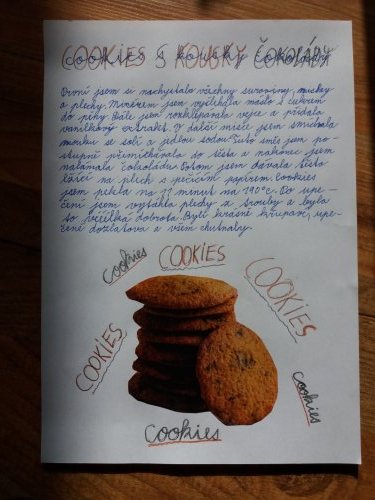 COOKIES S KOUSKY ČOKOLÁDY
První jsem si nachystala všechny suroviny, misky
a plechy. Mixérem jsem vyšlehala máslo s cukrem
do pěny. Dále jsem rozklepávala vejce a přidala
vanilkový extrakt. V další míse jsem smíchala
mouku se solí a jedlou sodou. Tuto směs jsem po-
stupně přimíchávala do těsta a nakonec jsem
nalámala čokoládu. Potom jsem dávala těsto
lžící na plech s pečícím papírem. Cookies
jsem pekla na 11 minut na 190°C. Po upe-
čení jsem vytáhla plechy z trouby a byla
to dobrota. Byli krásně křupaví, upe-
čené dozlatova a všem chutnaly.
cookies
COOKIES
COOKIES
COOKIES
cookies
cookies